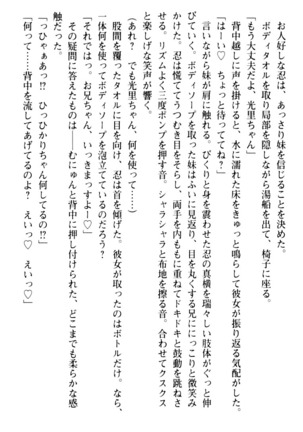 お人好しな忍は、あっさり妹を信じることを決めた。
ボディタオルを取り局部を隠しながら湯船を出て、椅子に座る。
「もう大丈夫だよ、光里ちゃん」
「はーい♡　ちょっと待っててね?」
背中越しに声を掛けると、水に濡れた床をきゅっと鳴らして彼女が振り返る気配がした。
言いながら妹が肩に触れる。びくりと身を震わせた忍の真横を瑞々しい肢体がぐっと伸
びゆく。ボディソープを取った妹はふいに見返り、目を丸くする兄ににこっと微笑み
かけた。忍は慌ててうつむき目をそらし、両手を内ももに重ねてドキドキと鼓動を跳ねさ
せる。リズムよく三度ポンプを押す音、シャラシャラと布地を擦る音。合わせてクスクス
と楽しげな笑声が響く。
（あれ?　でも光里ちゃん、何を使って……）
股間を覆ったタオルに目を向け、忍は首を傾げた。彼女が取ったのはボトルだけ。なら
一体何を使ってボディソープを泡立てているのだろう?
「それではっ。お兄ちゃん、いっきまっすよー♡」
その疑問に答えたものは――むにゅんと背中に押し付けられた、どこまでも柔らかな感
触だった。
「っひゃぁあっ!?　ひっひかりちゃん何してるの!?」
「何って……背中を流してあげてるんだよ?　えいっ♡　えいっ♡」